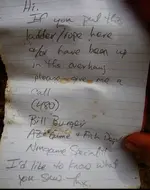 Hi.
If you put the
ladder/rope here
or have been up
in the overhang
please give me a
call
(480)
Bill Burger
AZ Game & Fish Dept
Nongame Specialist
I'd like to know what
you saw thx.